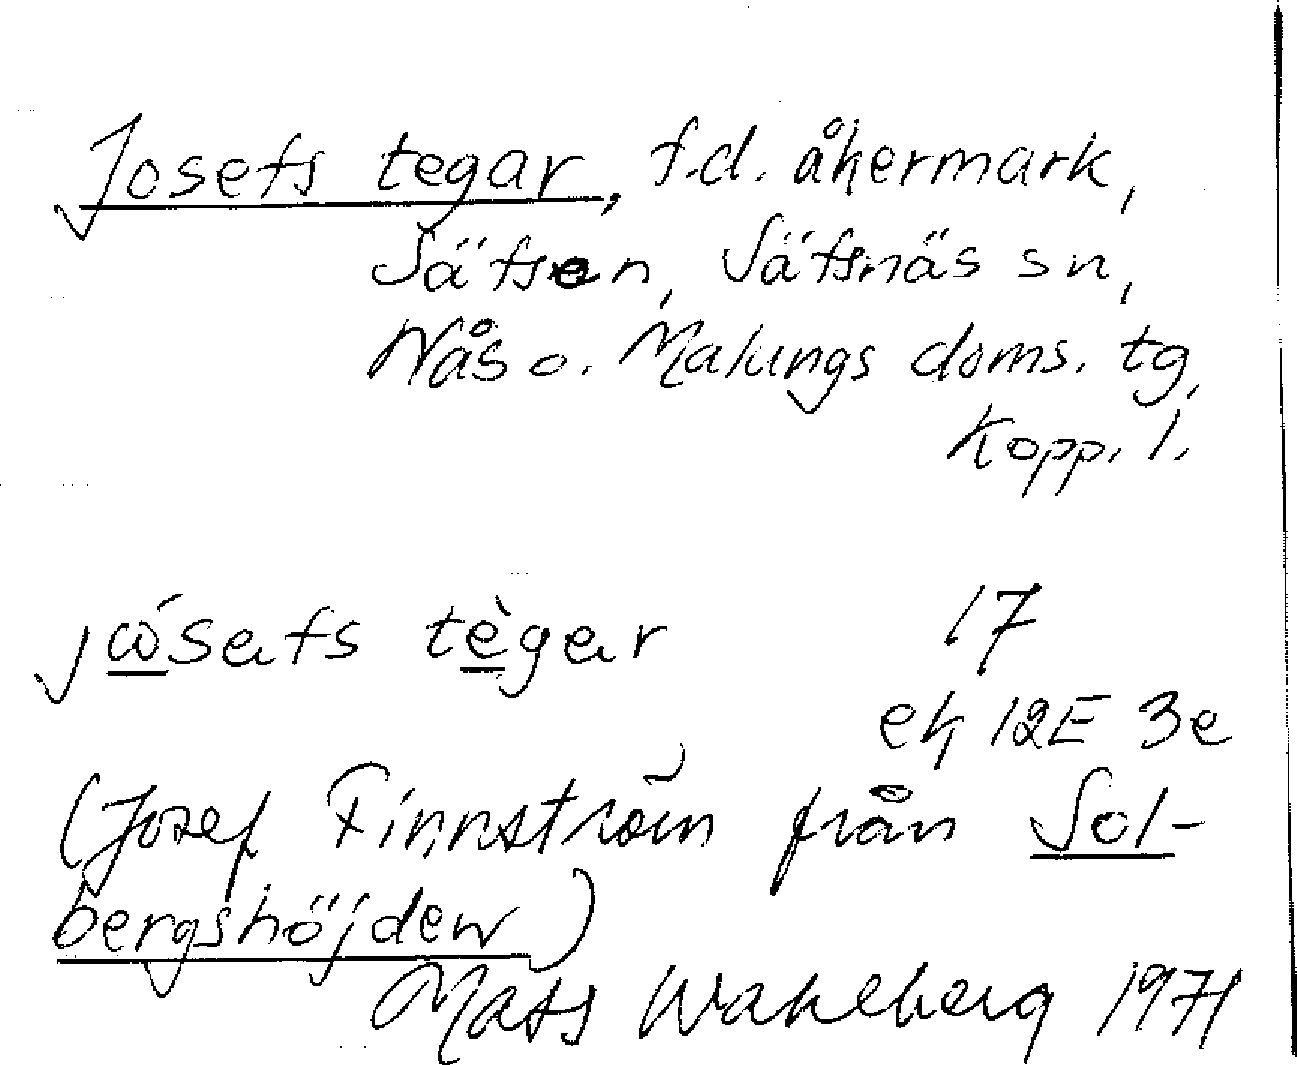 Josefs tegar, f.d. åkermark,
Säfsen, Säfsnäs sn,
Nås o. Malungs doms. tg,
Kopp. l.
jώsefs tègar 17
ek 12E 3e
(Josef Finnström från Sol-
bergshöjden)
Mats Wahlberg 1971